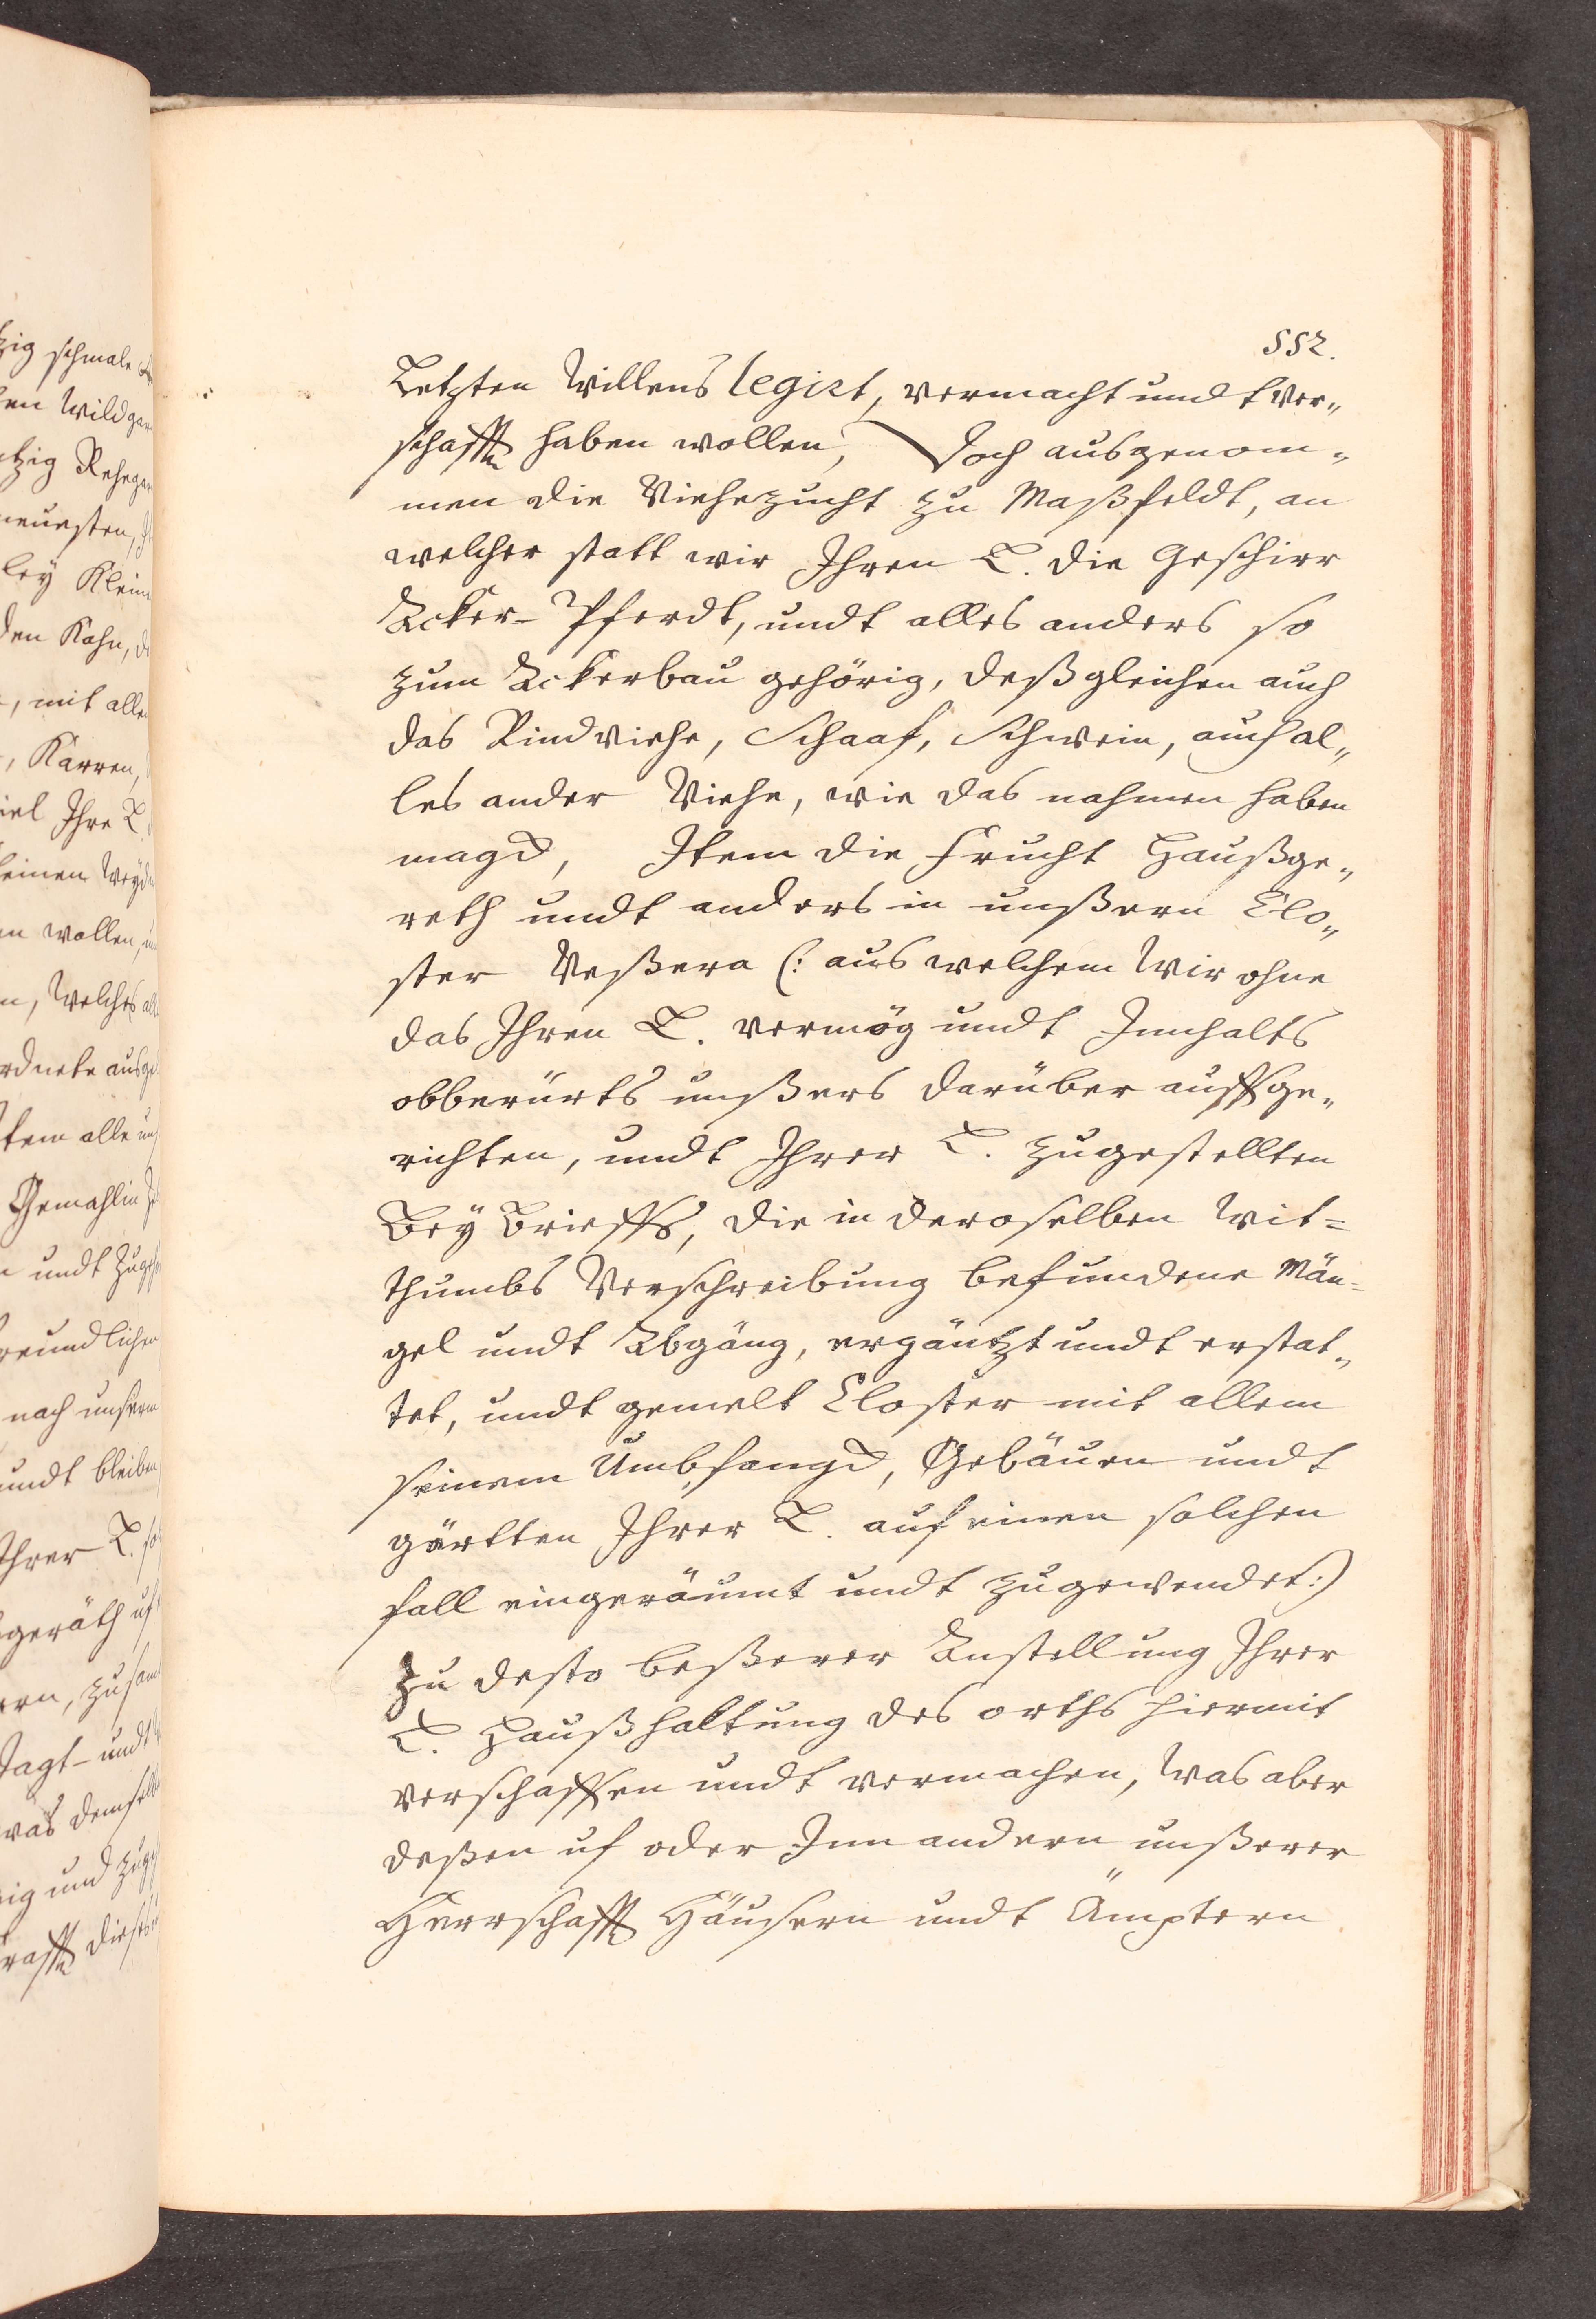 552.
Letzten Willens legirt, vermacht undt ver„
schafft haben wollen, Doch ausgenom„
men die Viehezucht zu Maßfeldt, an
welcher statt wir Ihren L. die Geschirr
Acker- Pferdt, undt alles anders so
zum Ackerbau gehörig, deßgleichen auch
das Rindviehe, Schaaf, Schwein, auch al„
les ander Viehe, wie das nahmen haben
magd, Item die Frucht Haußge„
reth undt anders in unßern Clo„
ster Veßera (: aus welchem Wir ohne
das Ihren L. vermög undt Innhalts
obberürts unßers darüber auffge„
richten, undt Ihrer L. zugestellten
Bey Brieffs, die in deroselben Wit=
thumbs Verschreibung befundene Män-
gel undt Abgäng, ergäntzt undt erstat„
tet, undt gemelt Closter mit allem
seinem Umbfangd, Gebäuen undt
gärtten Ihrer L. auf einen solchen
fall eingeräumt undt zugewendet:)
zu desto beßerer Anstellung Ihrer
L. Haußhaltung des orths hiermit
verschaffen undt vermachen, Was aber
deßen uf oder Inn andern unßerer
Herrschafft Häusern undt Ämptern